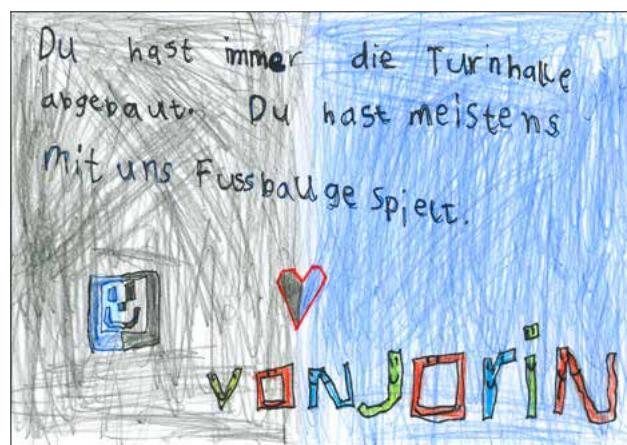 Du hast immer die Turnhalle
abgebaut. Du hast meistens
mit uns Fussball gespielt.
von Jorin